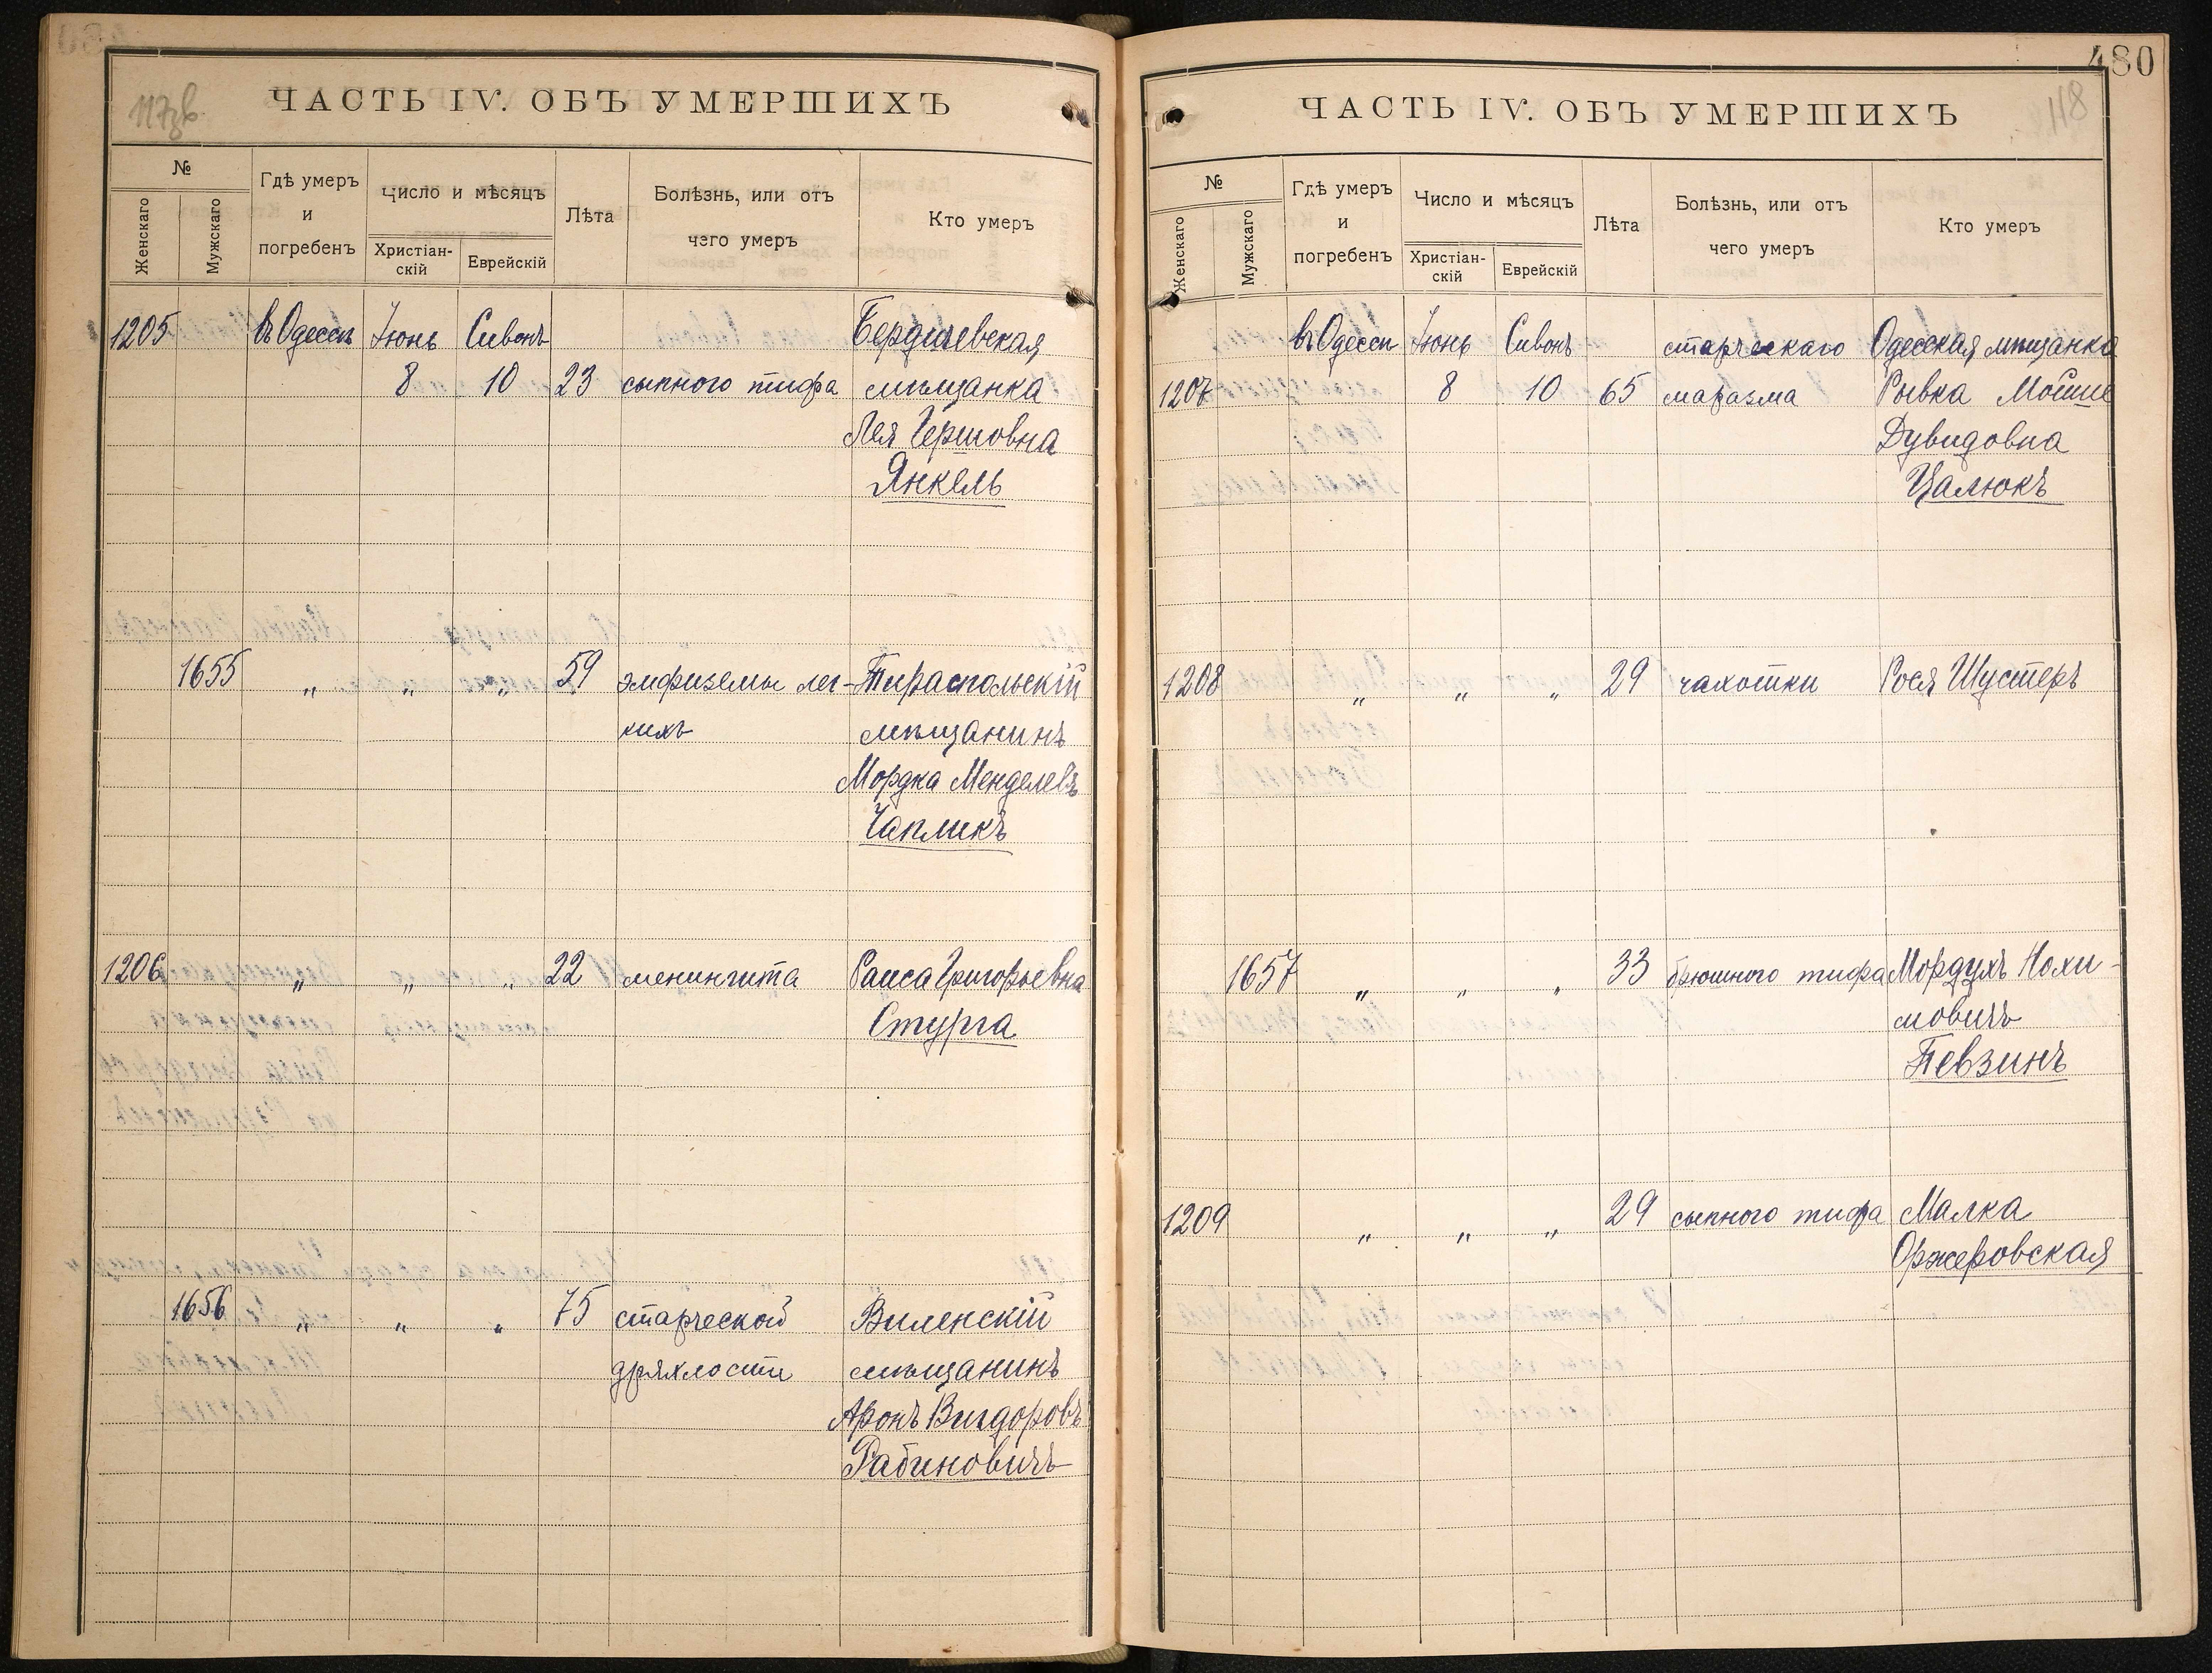 117зв
ЧАСТЬ IV. ОБЪ УМЕРШИХЪ
№
Женскаго
Мужскаго
Гдѣ умеръ
и
погребенъ
Число и мѣсяцъ
Христіан-
скій
Еврейскій
Лѣта
Болѣзнь, или отъ
чего умеръ
Кто умеръ
1205 въ Одессѣ Іюнь Сивонъ Бердичевская
8 10 23 сыпного тифа мѣщанка
Лея Гершовна
Янкель
1655 „ „ „ 59 эмфиземы лег- Тираспольскій
кихъ мѣщанинъ
Мордка Менделевъ
Чапликъ
1206 „ „ „ 22 менингита Раиса Григорьевна
Стурга
1656 „ „ „ 75 старческой Виленскій
дряхлости мѣщанинъ
Аронъ Вигдоровъ
Рабиновичъ
480
118
ЧАСТЬ IV. ОБЪ УМЕРШИХЪ
№
Женскаго
Мужскаго
Гдѣ умеръ
и
погребенъ
Число и мѣсяцъ
Христіан-
скій
Еврейскій
Лѣта
Болѣзнь, или отъ
чего умеръ
Кто умеръ
въ Одессѣ Іюнь Сивонъ старческаго Одесская мѣщанка
1207 8 10 65 маразма Рывка Мойше
Дувидовна
Цалюкъ
1208 „ „ „ 29 чахотки Рося Шустеръ
1657 „ „ „ 33 брюшного тифа Мордухъ Нохи-
мовичъ
Певзинъ
1209 „ „ „ 29 сыпного тифа Малка
Оржеровская